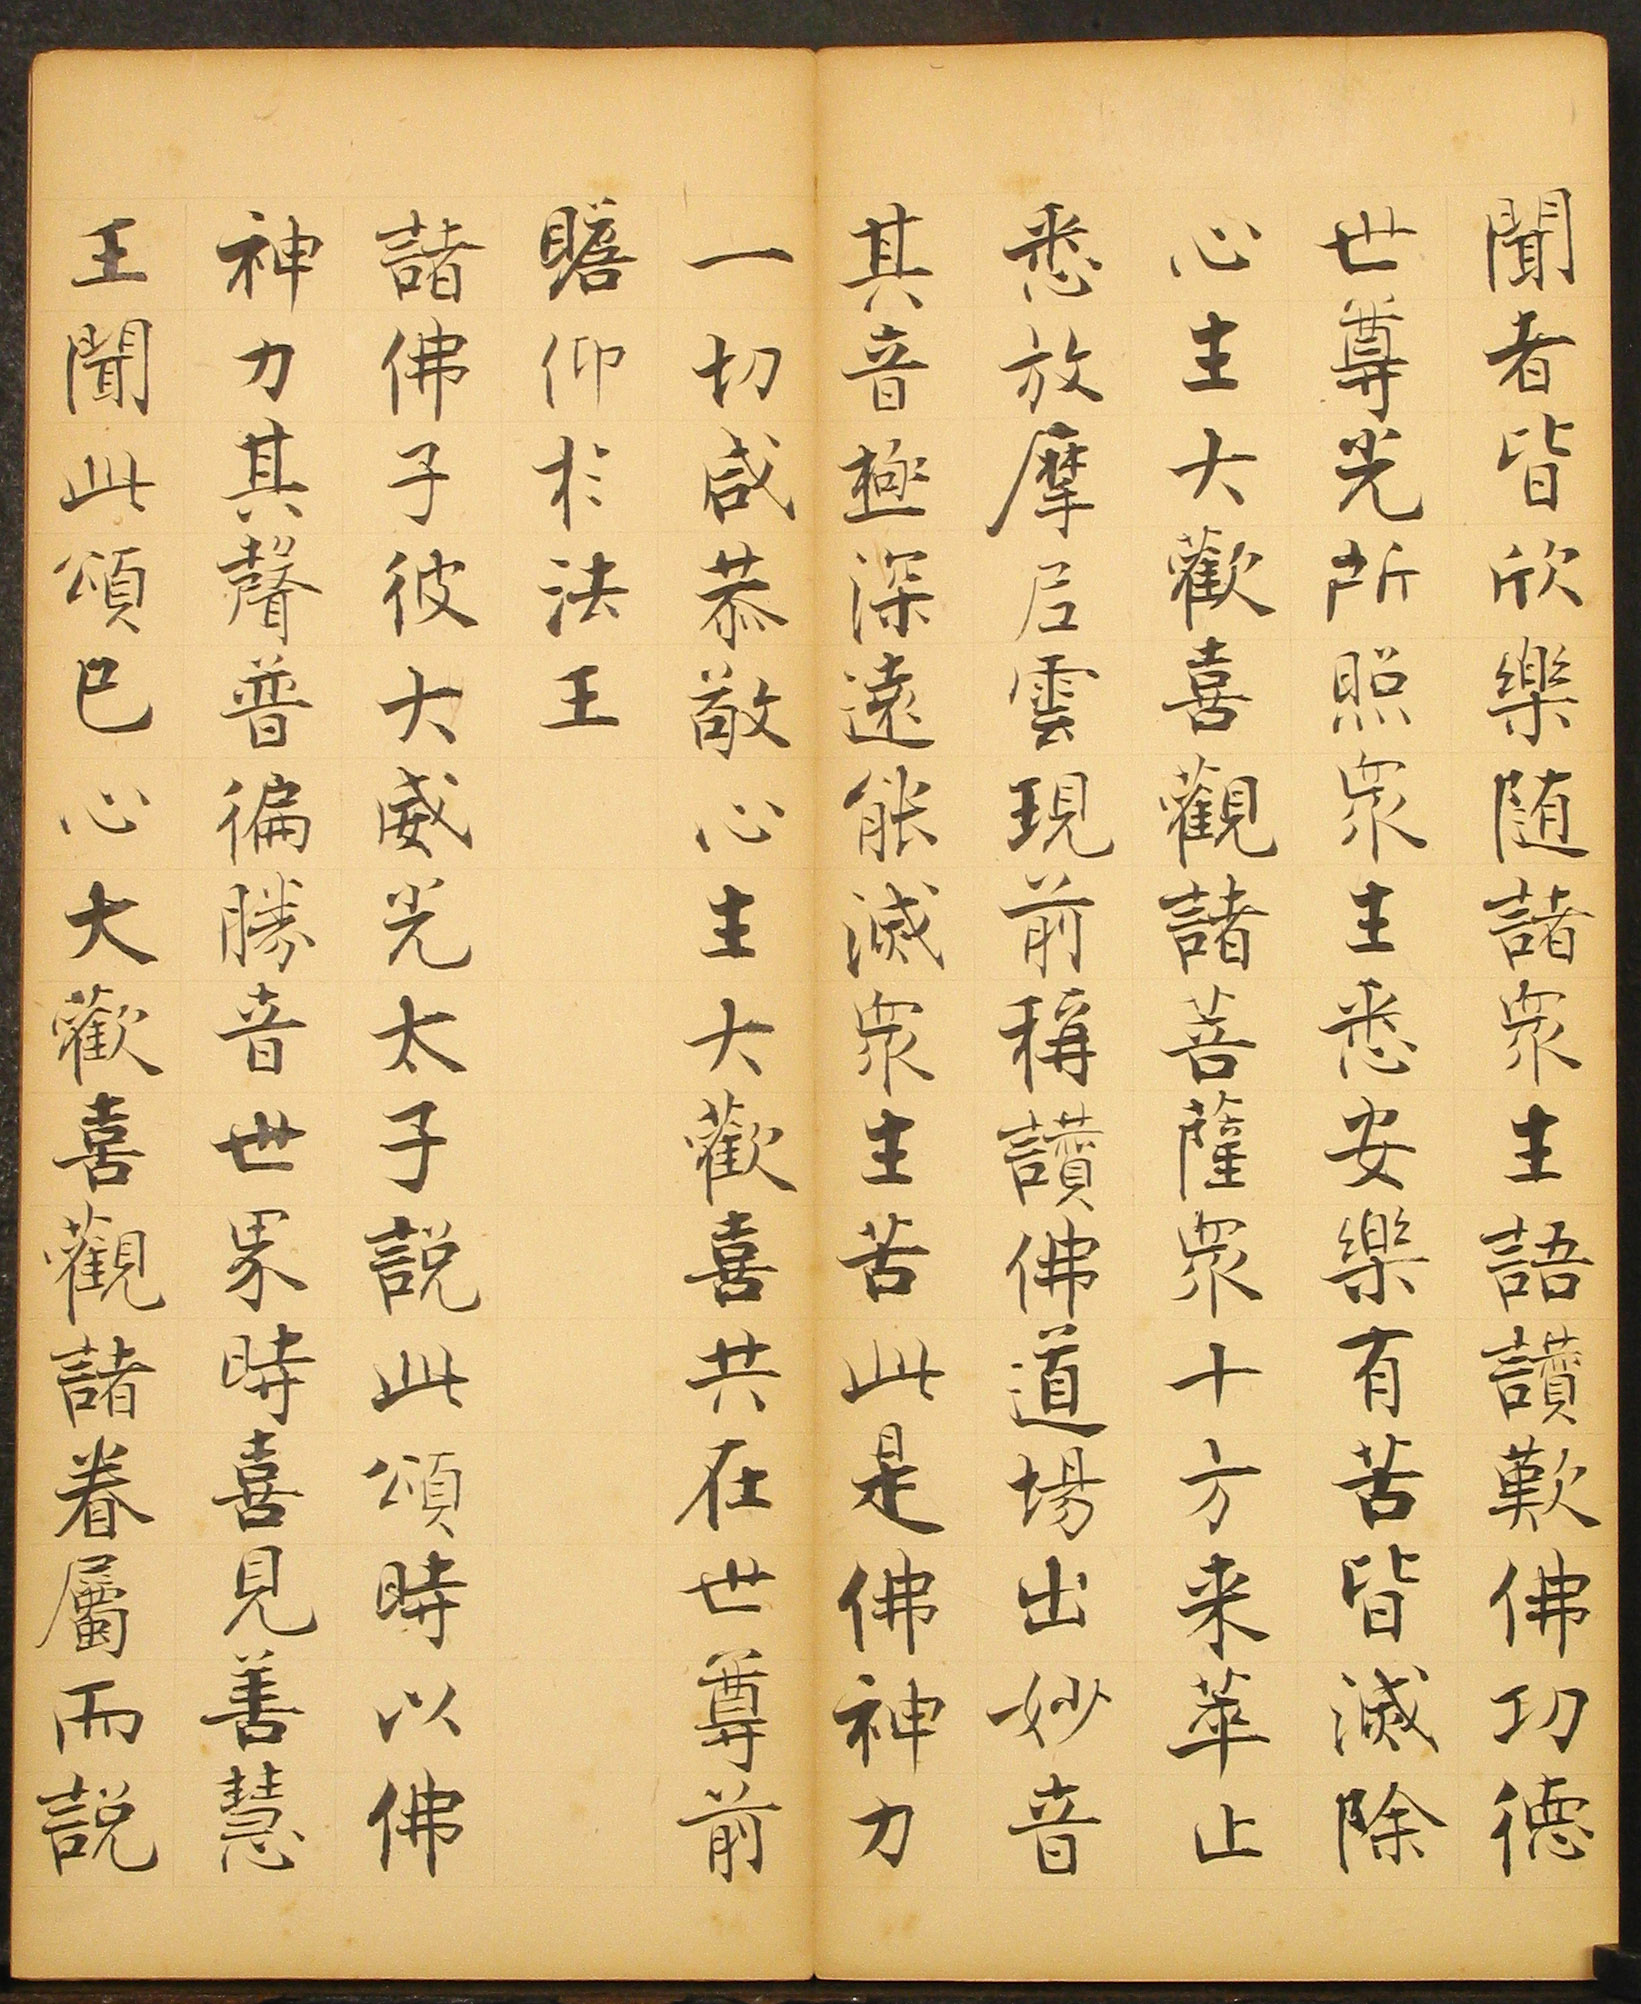 聞者皆欣樂随諸眾生語讃歎佛功德
世尊光所照眾生悉安樂有苦皆滅除
心生大歡喜觀諸菩薩眾十方来萃止
悉放摩尼雲現前稱讃佛道場出妙音
其音極深遠能滅眾生苦此是佛神力
一切咸恭敬心生大歡喜共在世尊前
瞻仰於法王
諸佛子彼大威光太子說此頌時以佛
神力其聲普徧勝音世界時喜見善慧
王聞此頌已心大歡喜觀諸眷屬而說